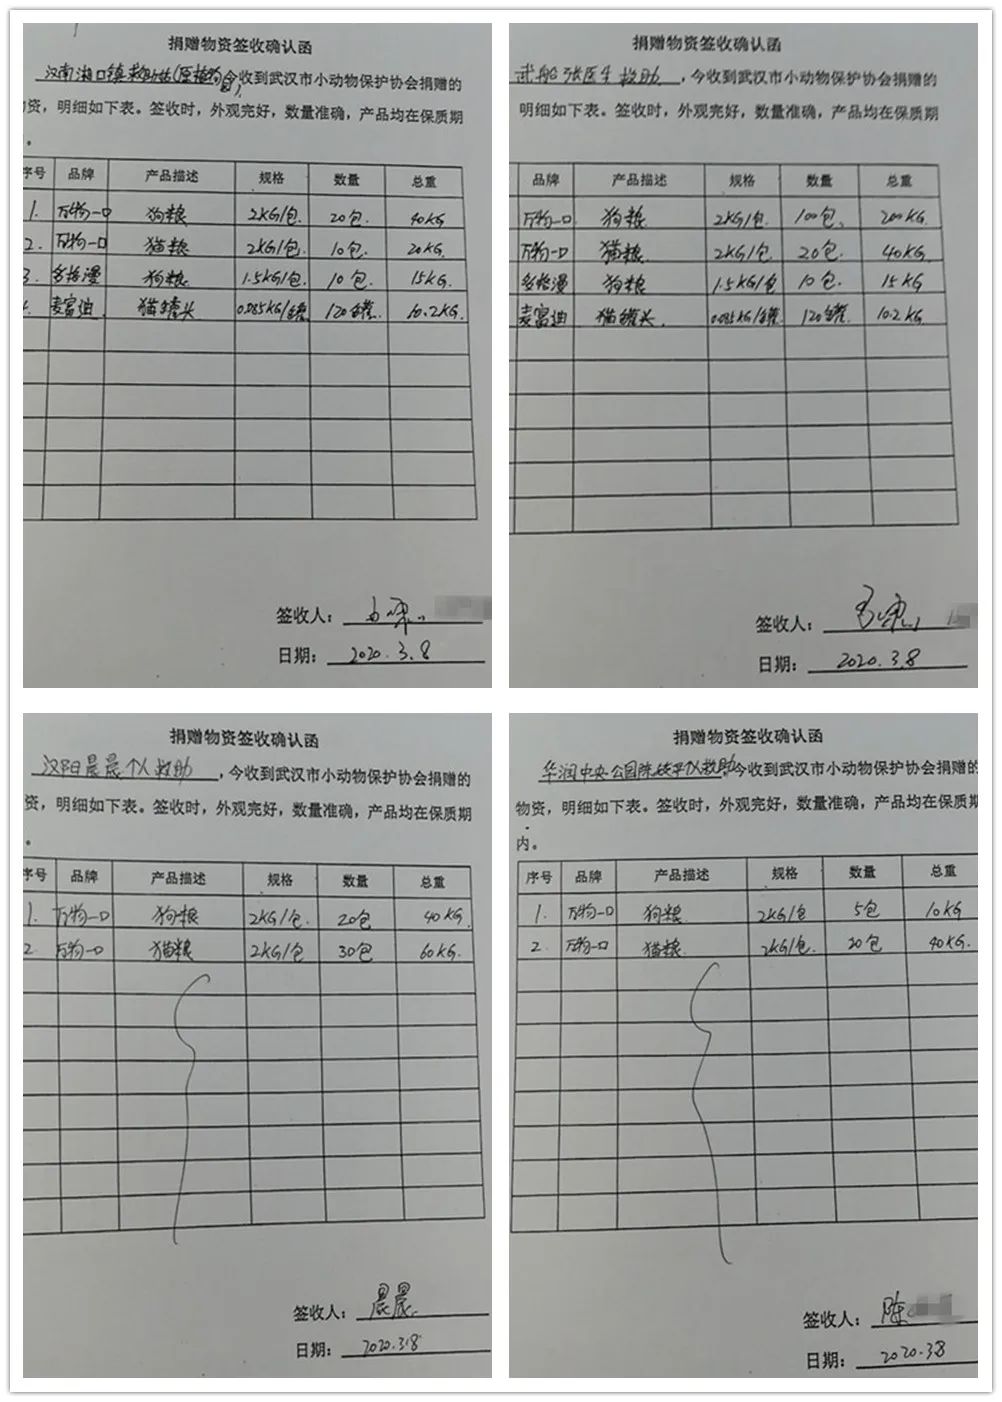 捐赠物资签收确认函
汉南湘口镇救助站(原植物园)今收到武汉市小动物保护协会捐赠的
资，明细如下表。签收时，外观完好，数量准确，产品均在保质期
。
序号 品牌 产品描述 规格 数量 总重
1. 万物一口 狗粮 2KG/包. 20包. 40KG
2. 万物一口 猫粮 2KG/包. 10包. 20KG
3. 多格漫 狗粮 1.5KG/包. 10包. 15KG
麦富迪 猫罐头 0.085KG/罐 120罐. 10.2KG.
签收人：
日期： 2020.3.8
捐赠物资签收确认函
武船张医生救助，今收到武汉市小动物保护协会捐赠的
明细如下表。签收时，外观完好，数量准确，产品均在保质期
品牌 产品描述 规格 数量 总重
万物一口 狗粮 2KG/包. 100包. 200KG.
万物一口 猫粮 2KG/包. 20包. 40KG
多格漫 狗粮 1.5KG/包 10包. 15KG
麦富迪 猫罐头. 0.085KG/罐. 120罐. 10.2KG
签收人：
日期： 2020.3.8
捐赠物资签收确认函
汉阳晨晨个人救助，今收到武汉市小动物保护协会捐赠的
资，明细如下表。签收时，外观完好，数量准确，产品均在保质期
。
序号 品牌 产品描述 规格 数量 总重
1. 万物一口 狗粮 2KG/包. 20包 40KG.
2. 万物一口 猫粮 2KG/包. 30包 60KG.
签收人： 晨晨.
日期： 2020.3.8
捐赠物资签收确认函
华润中央公园陈 个人救助,今收到武汉市小动物保护协会捐赠的
物资，明细如下表。签收时，外观完好，数量准确，产品均在保质期
内。
序号 品牌 产品描述 规格 数量 总重
1. 万物一口 狗粮. 2KG/包 5包 10KG
2. 万物一口 猫粮. 2KG/包. 20包 40KG.
签收人： 陈
日期： 2020.3.8